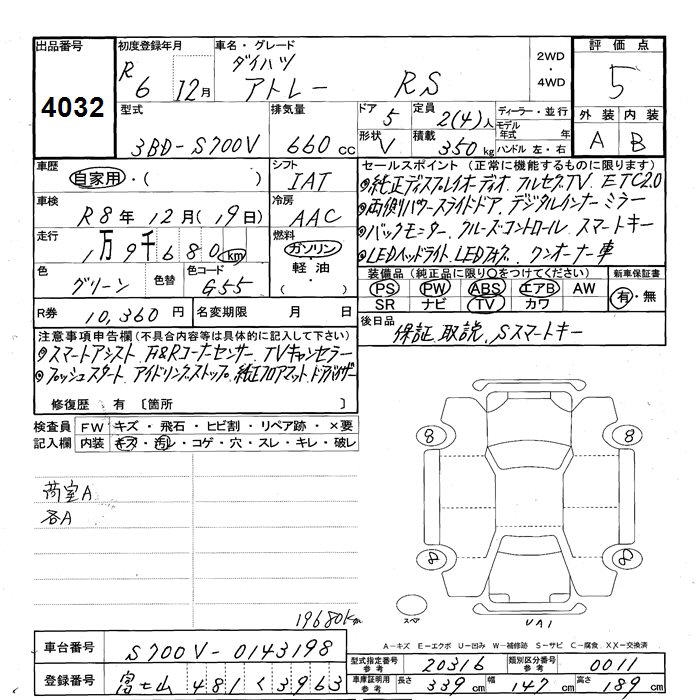 出品番号 初度登録年月 車名・グレード 2WD・4WD 評価点
4032 R6 12月 ダイハツ アトレー RS 5
型式 排気量 ドア 5 定員 2(4)人 ディーラー・並行 外装 内装
3BD-S700V 660cc 形状 V 積載 350kg モデル年式 年 ハンドル 左・右 A B
車歴 シフト セールスポイント (正常に機能するものに限ります)
自家用・( ) IAT ◎純正ディスプレイオーディオ.フルセグTV.ETC2.0
車検 冷房 ◎両側パワースライドドア.デジタルインナーミラー
R8年12月(19日) AAC ◎バックモニター.クルーズコントロール.スマートキー
走行 1万9千680km 燃料 ガソリン・軽油・( ) ◎LEDヘッドライト.LEDフォグ.ワンオーナー車
色 グリーン 色替 色コード G55 装備品 (純正品に限り○をつけてください) 新車保証書
PS PW ABS エアB AW 有・無
SR ナビ TV カワ
R券 10,360円 名変期限 月 日 後日品 保証.取説.Sスマートキー
注意事項申告欄 (不具合内容等は具体的に記入して下さい)
◎スマートアシスト.F&Rコーナーセンサー.TVキャンセラー
◎プッシュスタート.アイドリングストップ.純正フロアマット.ドアバイザー
修復歴 有 〔箇所 〕
検査員 FW キズ・飛石・ヒビ割・リペア跡・×要
記入欄 内装 キズ・汚レ・コゲ・穴・スレ・キレ・破レ
荷室A
各A
8 8
8 8
スペア
19680km
A-キズ E-エクボ U-凹み W-補修跡 S-サビ C-腐食 XX-交換済
車台番号 S700V-0143198
型式指定番号 参考 20316 類別区分番号 参考 0011
登録番号 富士山 481 く 3963
車庫証明用 参考 長さ 339cm 幅 147cm 高さ 189cm